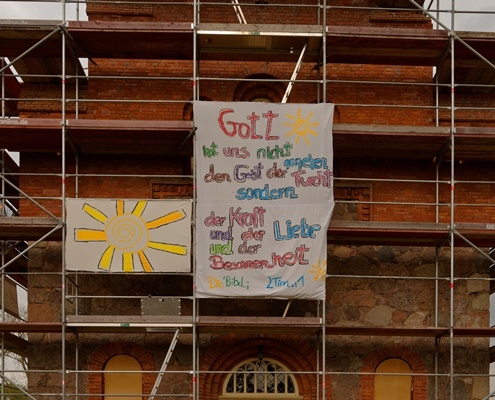 Gott
hat uns nicht
gegeben
den Geist der Furcht
sondern
der Kraft
und der Liebe
und der
Besonnenheit
Die Bibel; 2Tim.,1